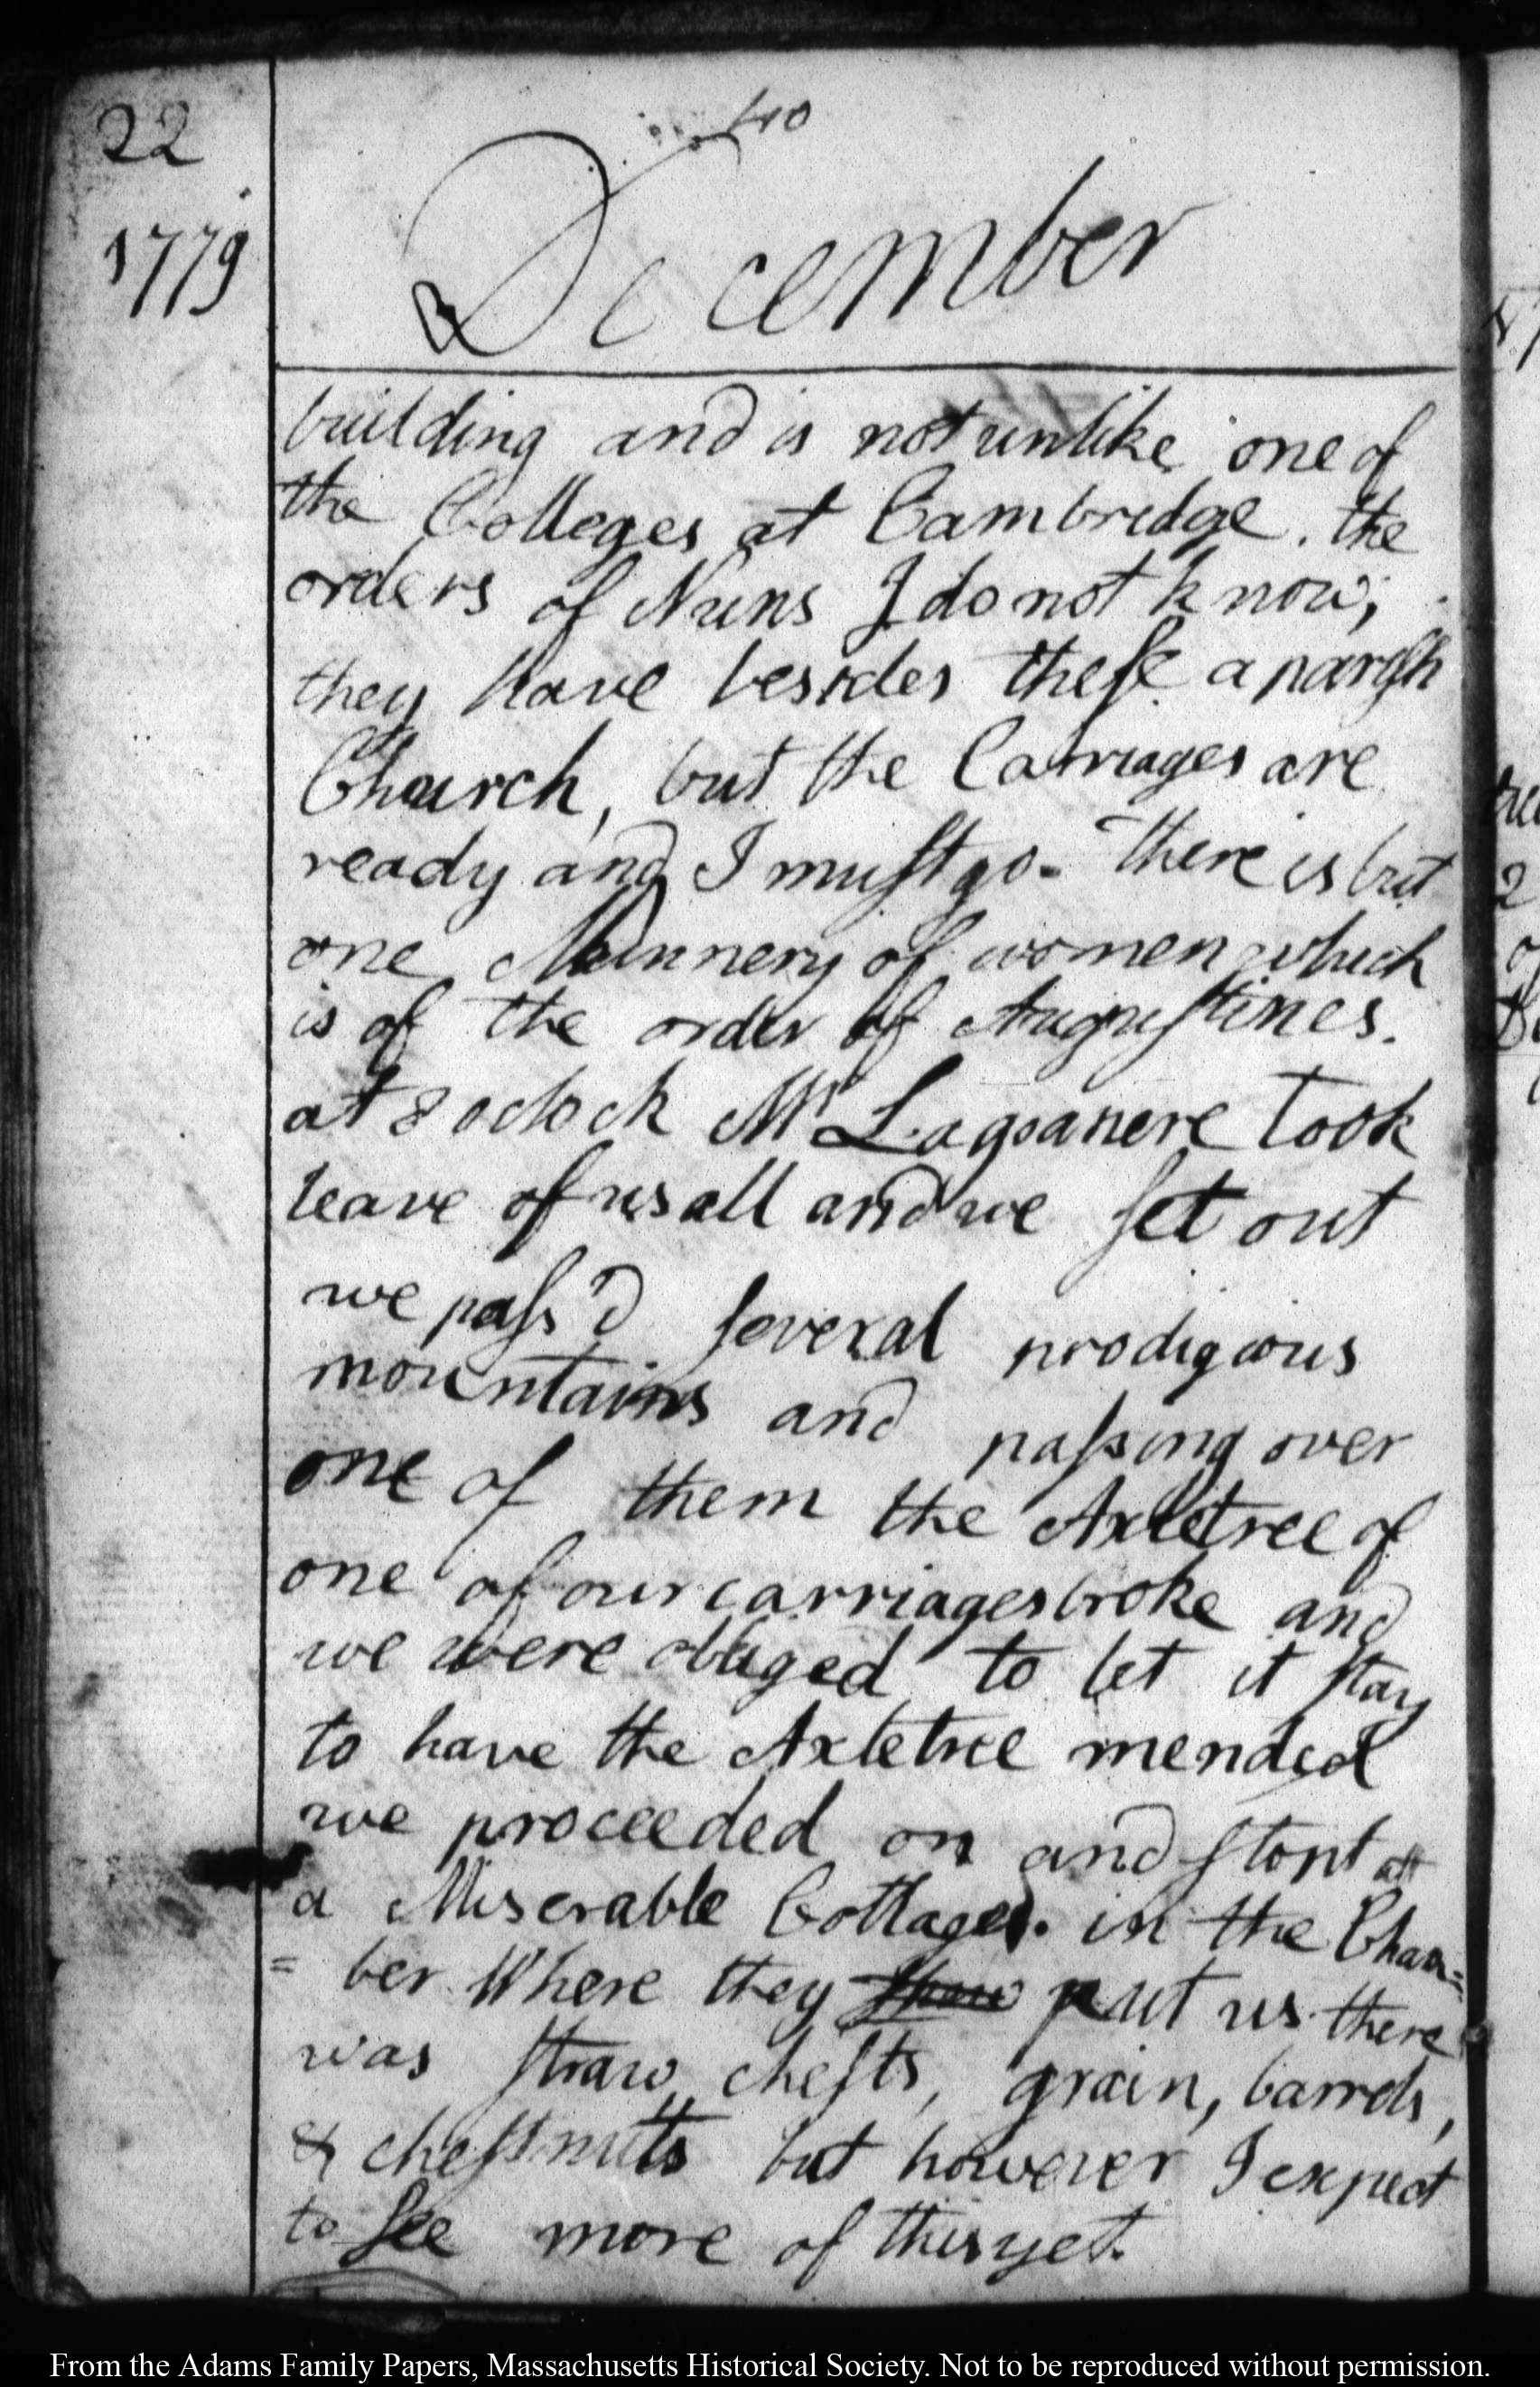 22
40
1779
December
building and is not unlike one of
the Colleges at Cambridge. the
orders of Nuns I do not know,
they have besides these a parish
Church, but the Carriages are
ready and I must go. There is but
one Nunnery of women which
is of the order of Augustines.
at 8 oclock Mr Lagoanere took
leave of us all and we set out
we pass'd several prodigious
mountains and passing over
one of them the Axletree of
one of our carriages broke and
we were obliged to let it stay
to have the Axletree mended
we proceeded on and stopt at
a Miserable Cottage. in the Cham=
=ber Where they put us there
was straw, chests, grain, barrels,
& chestnuts but however I expect
to see more of this yet.
From the Adams Family Papers, Massachusetts Historical Society. Not to be reproduced without permission.